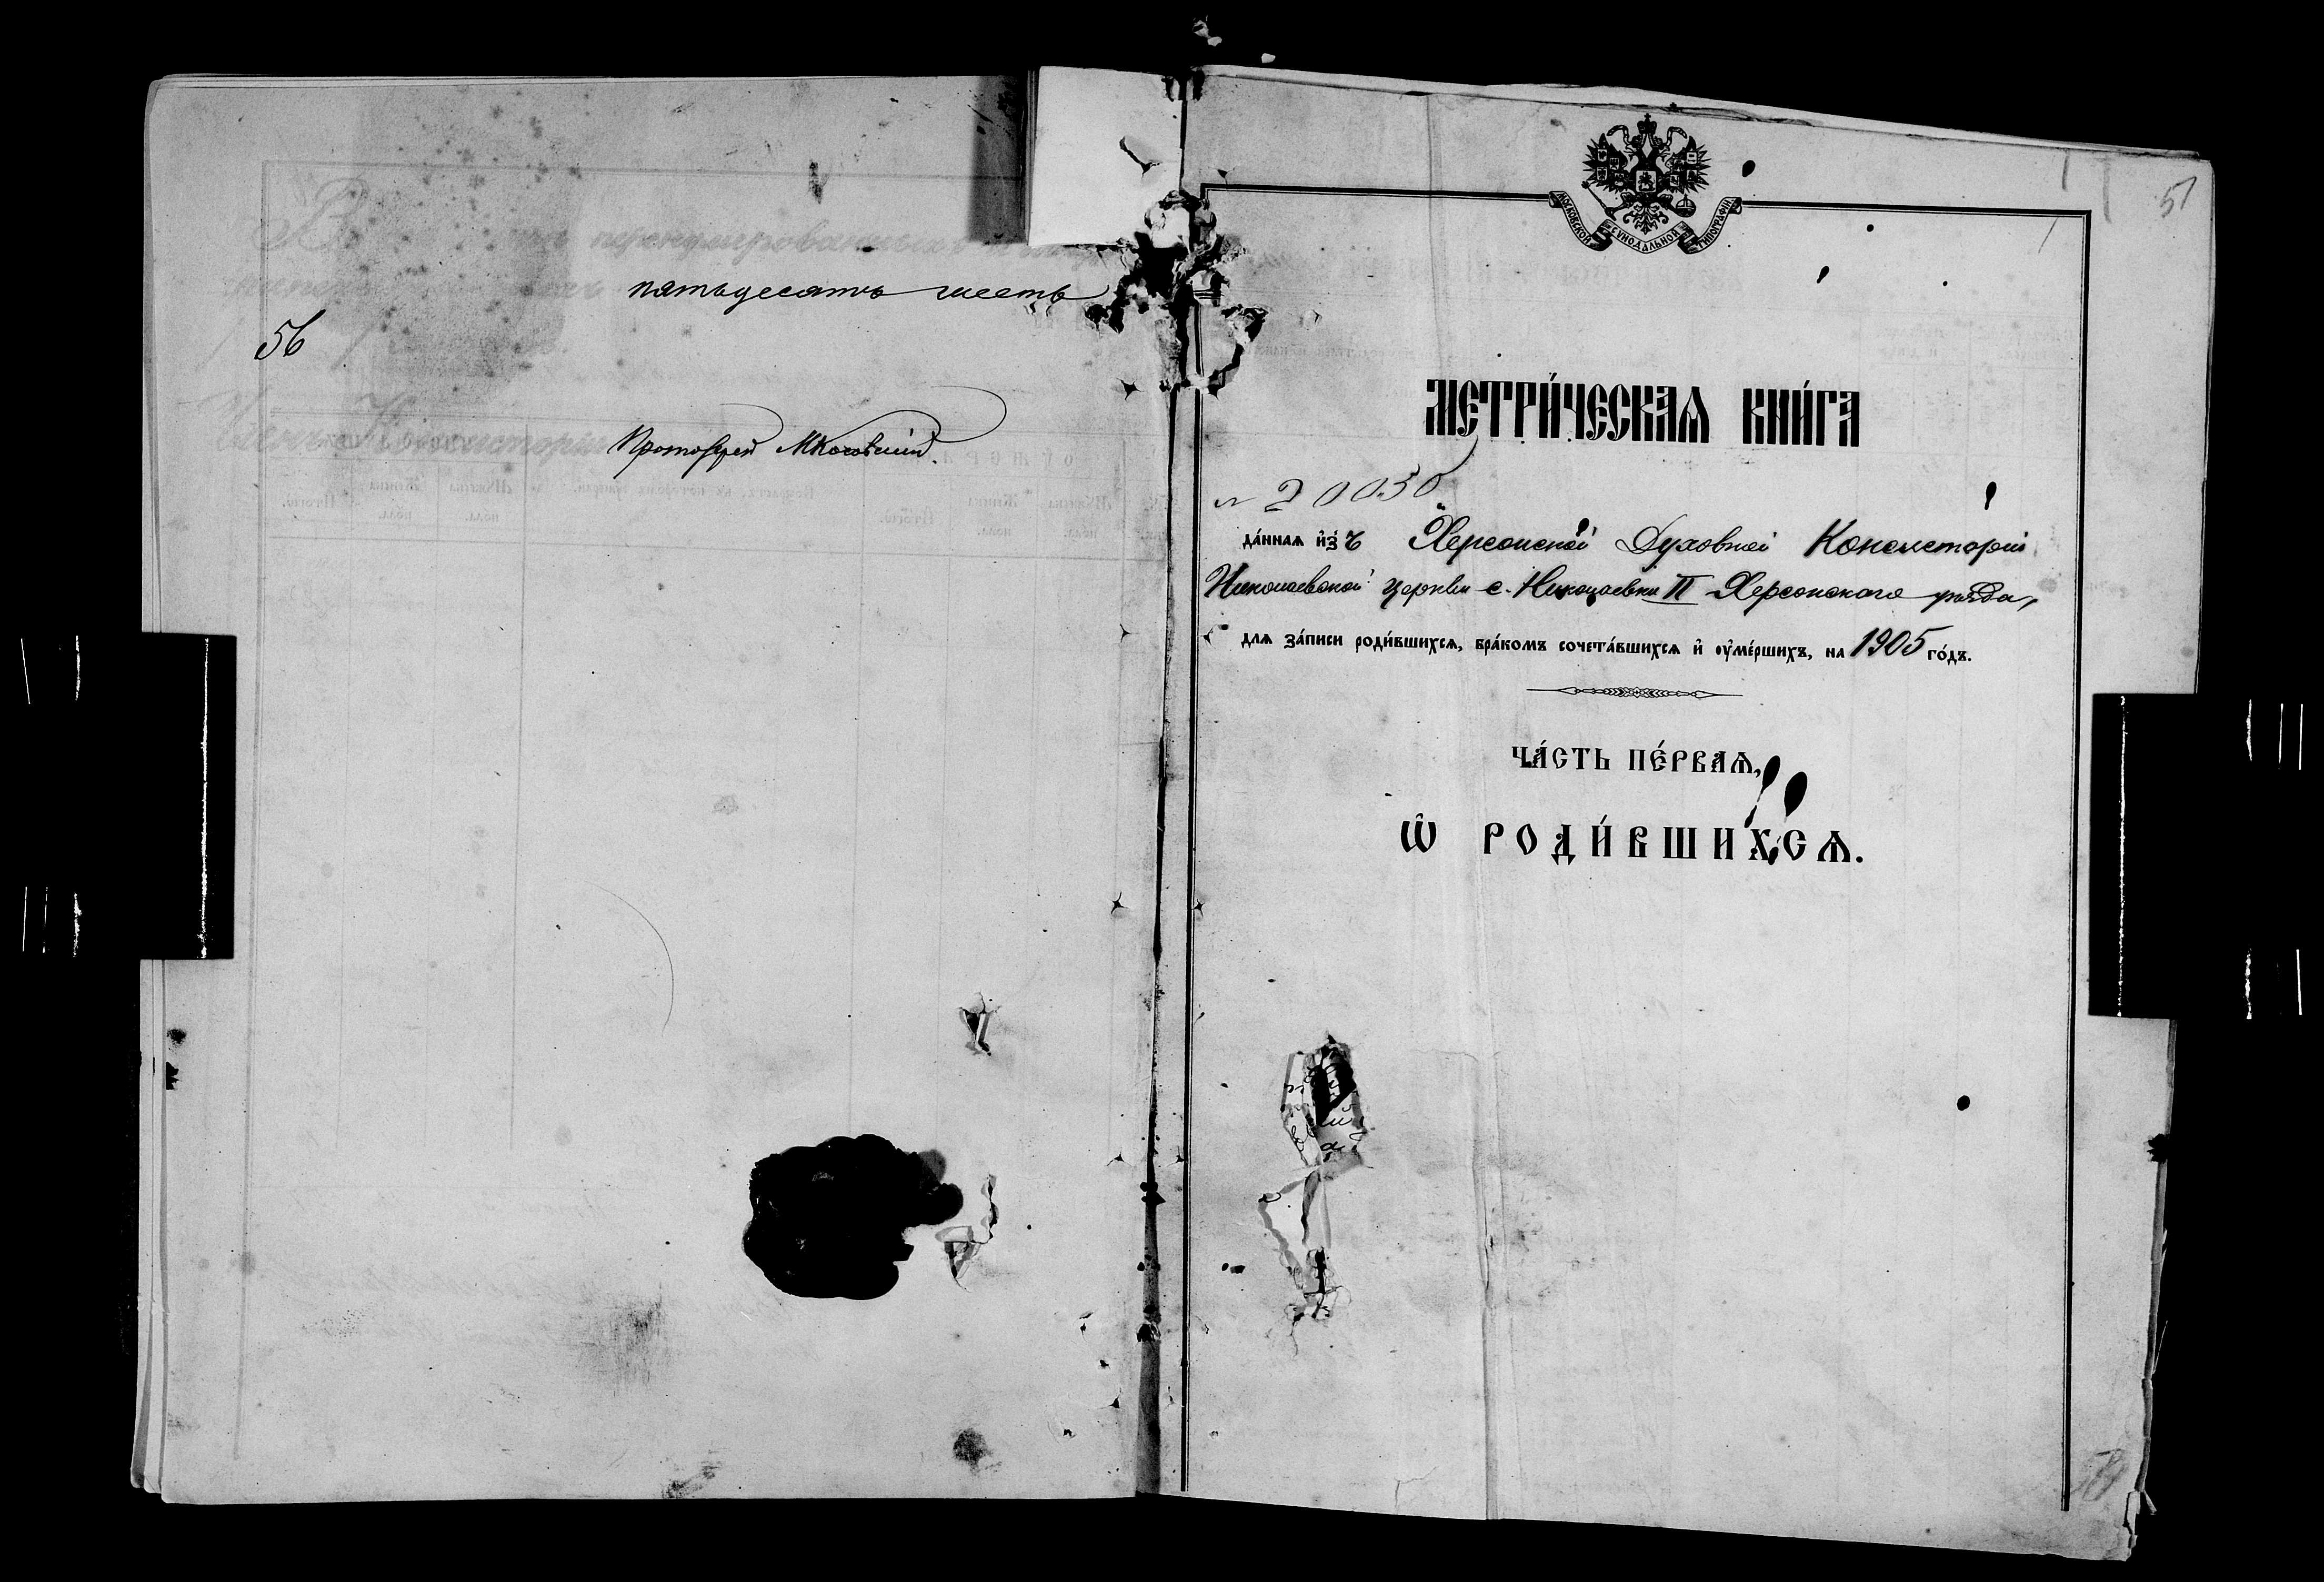 перенумерованныхъ
пятьдесятъ шесть
56
Протоіерей
51
МОСКОВСКОЙ СѴНОДАЛЬНОЙ ТИПОГРАФІИ
МЕТРИ́ЧЕСКАѦ КНИ́ГА
№ 20030
да́ннаѧ и҆зъ Херсонской Духовной Консисторіи
Николаевской церкви с. Николаевки II Херсонскаго уѣзда,
длѧ за́писи роди́вшихсѧ, бра́комъ сочета́вшихсѧ и҆ ᲂу҆ме́ршихъ, на 1905 го́дъ.
ЧА́СТЬ ПЕ́РВАѦ,
Ѡ҆ РОДИ́ВШИХСѦ.